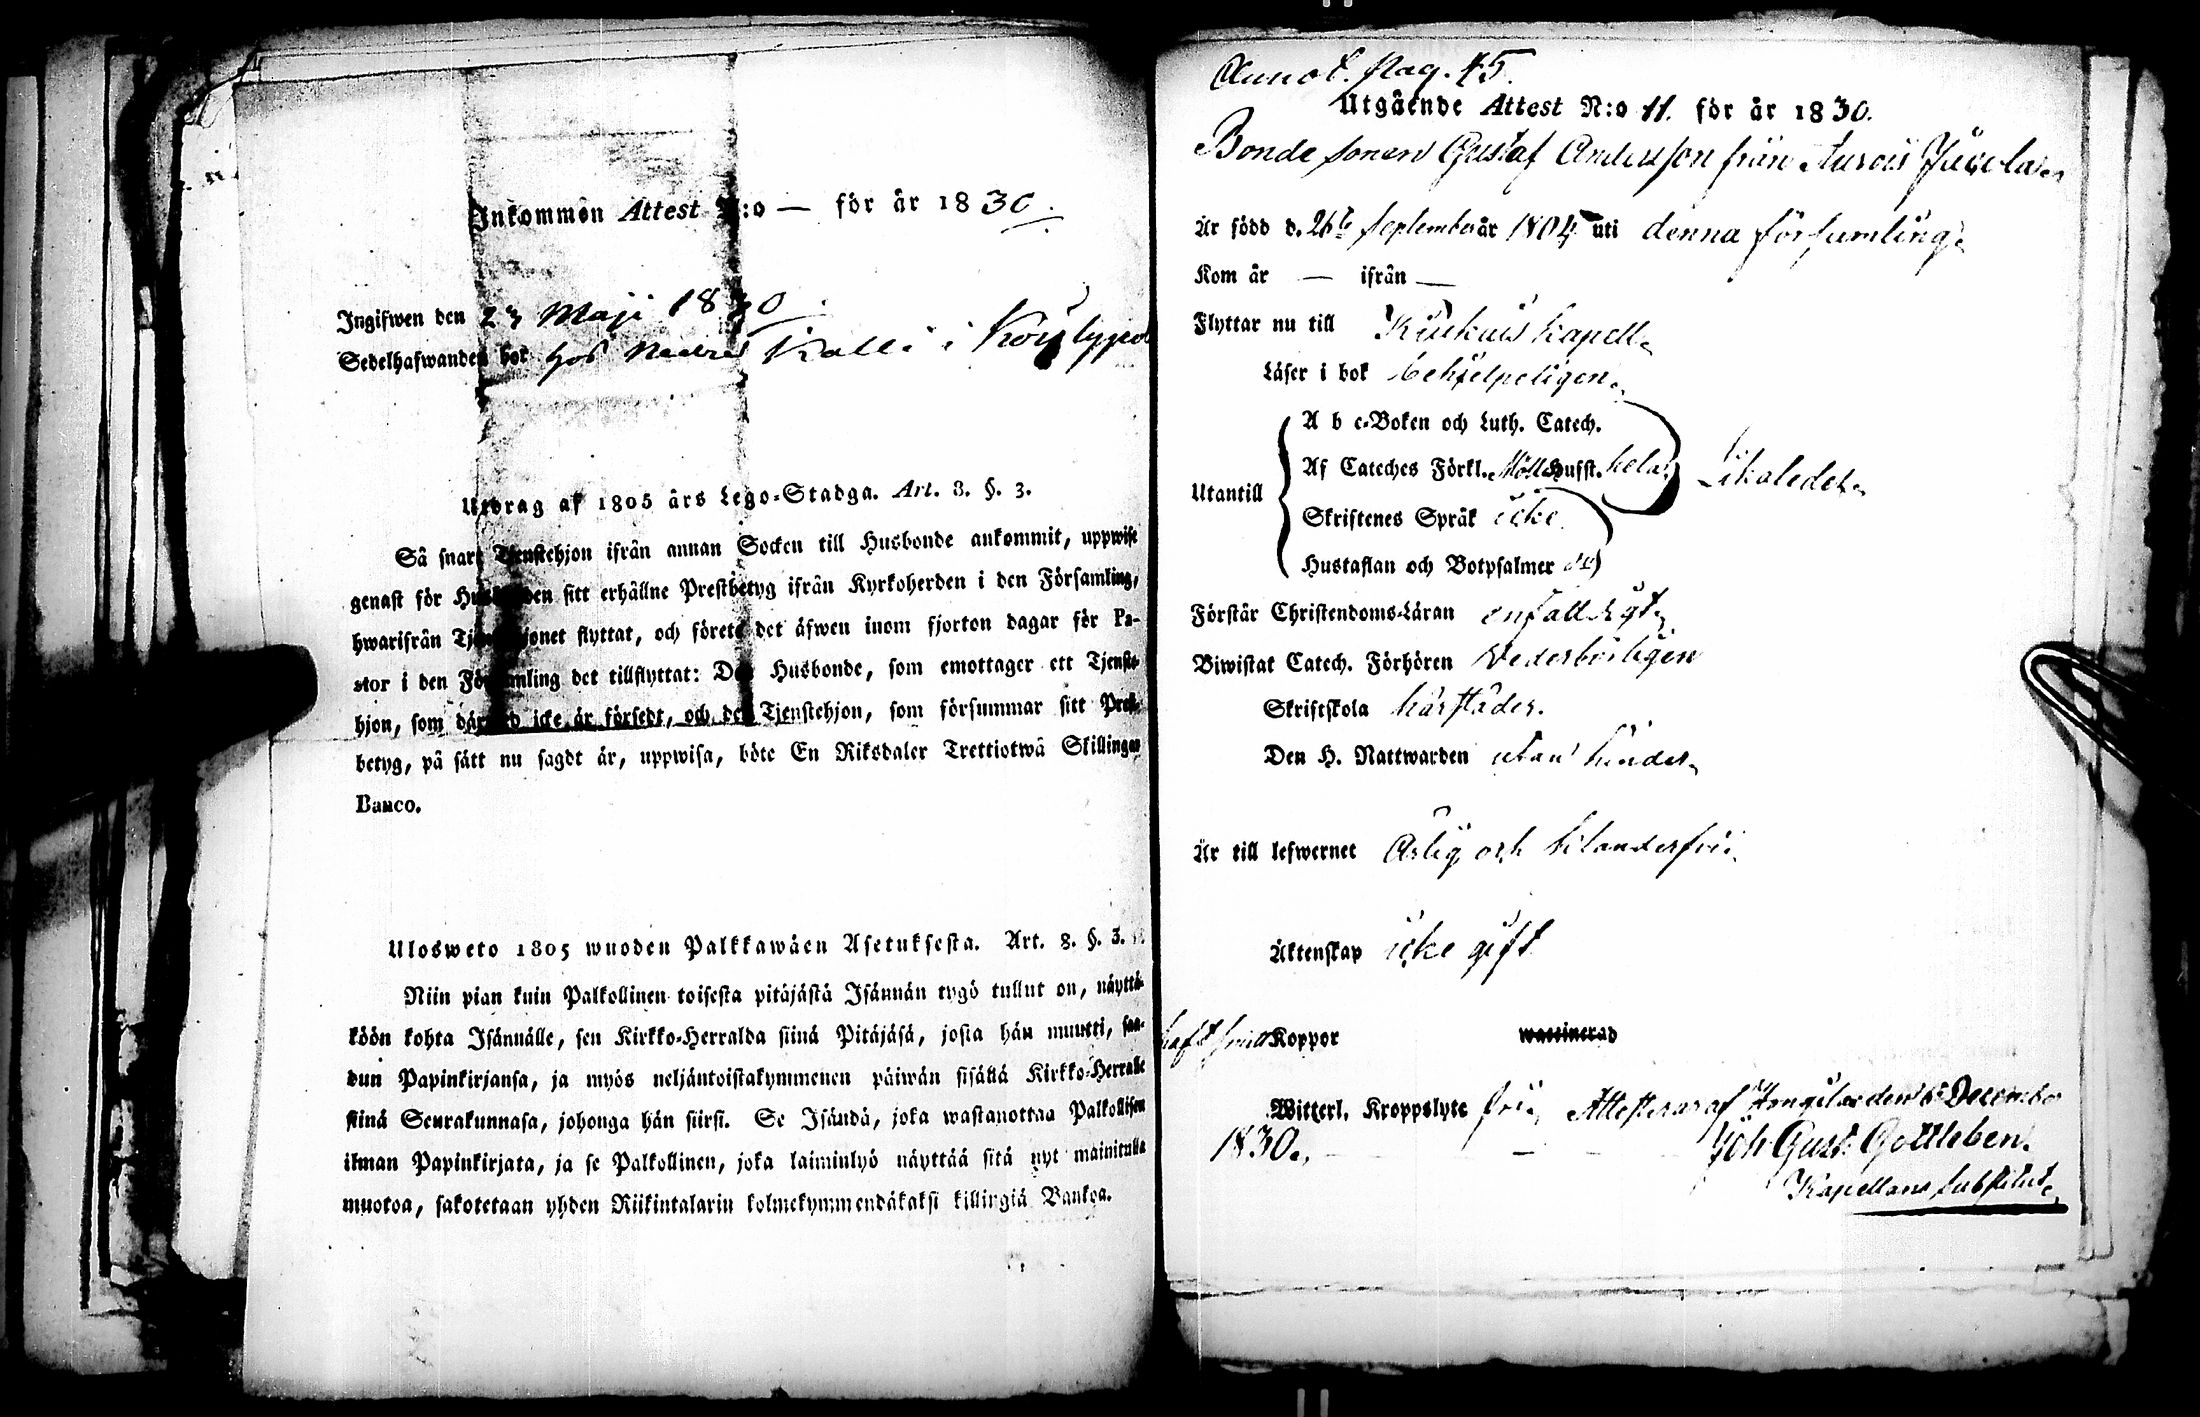 Inkommen Attest N:o — för år 1830.
Ingifwen den 23 Maji 1830
Sedelhafwanden bor hos Nedre Kalli i
Utdrag af 1805 års Lego-Stadga. Art. 8. §. 3.
Så snart Tjenstehjon ifrån annan Socken till Husbonde ankommit, uppwise
genast för Husbonden sitt erhållne Prestbetyg ifrån Kyrkoherden i den Församling,
hwarifrån Tjenstehjonet flyttat, och förete det äfwen inom fjorton dagar för Pa-
stor i den Församling det tillflyttat: Den Husbonde, som emottager ett Tjenste-
hjon, som därmed icke är försedt, och det Tjenstehjon, som försummar sitt Prest-
betyg, på sätt nu sagdt är, uppwisa, böte En Riksdaler Trettiotwå Skillingar
Banco.
Ulosweto 1805 wuoden Palkkawäen Asetuksesta. Art. 8. §. 3.
Niin pian kuin Palkollinen toisesta pitäjästä Isännän tygö tullut on, näyttä-
köön kohta Isännälle, sen Kirkko-Herralda siinä Pitäjäsä, josta hän muutti, saa-
dun Papinkirjansa, ja myös neljäntoistakymmenen päiwän sisällä Kirkko-Herralle
siinä Seurakunnasa, johonga hän siirsi. Se Isändä, joka wastanottaa Palkollisen
ilman Papinkirjata, ja se Palkollinen, joka laiminlyö näyttää sitä nyt mainitulla
muotoa, sakotetaan yhden Riikintalarin kolmekymmendäkaksi killingiä Bankoa.
Annot. pag. 45.
Utgående Attest N:o 11. för år 1830.
Bonde sonen Gustaf Andersson från
Är född d. 26te September år 1804 uti denna församling.
Kom år — ifrån —
Flyttar nu till Kiukais Kapell.
Läser i bok behjelpeligen.
Utantill
A b c-Boken och Luth. Catech.
Af Cateches Förkl. Hufst. hela
Skriftenes Språk icke
Hustaflan och Botpsalmer
Likaledes
Förstår Christendoms-Läran enfalldigt.
Biwistat Catech. Förhören Vederbörligen
Skriftskola härstädes.
Den H. Nattwarden utan hinder.
Är till lefwernet Ärlig och klanderfri.
Äktenskap icke gift
haft Koppor waccinerad
Witterl. Kroppslyte fri, Attesteras af den December
1830. Joh Gust. Gottleben.
Kapellans substitut.